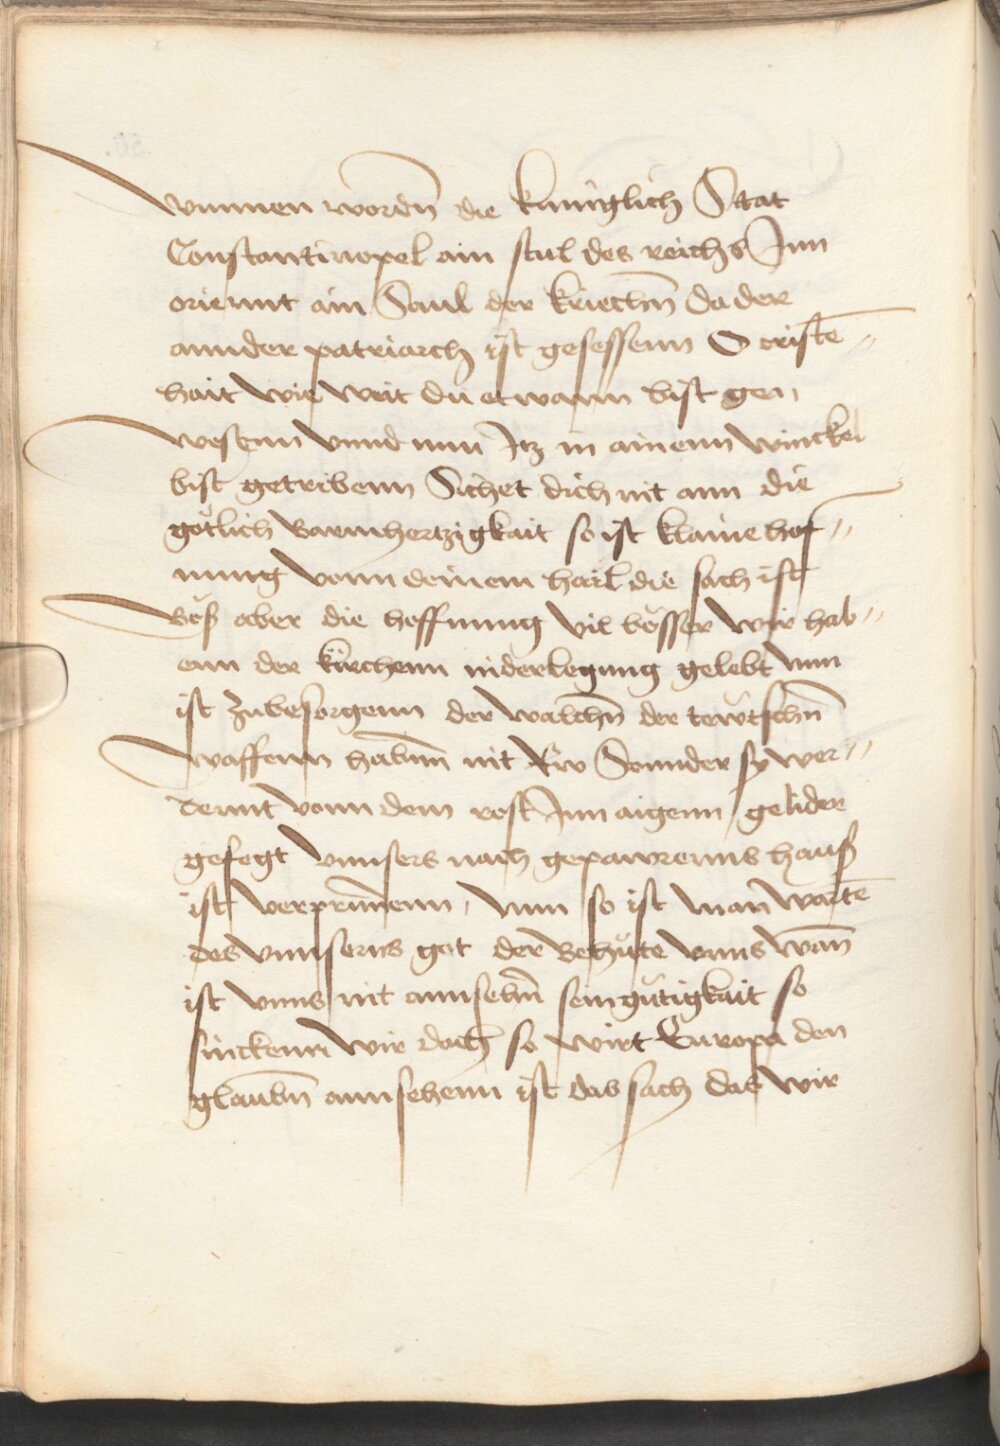 wunnen wordñ die kuniglich Stat
Constantinopel ain stul des reichs Inn
oriennt ain Saul der kriechñ da der
annder patriarch ist gesessenn O cristē
hait wie weit du etwann bist gen
wesenn vnnd nun Itz in ainenn winckel
bist getribenn Sichet dich nit ann die
gotlich barmhertzigkait so ist klaine hof=
nung vonn deinem hail die sach ist
Böß aber die hoffnung vil bösser wir hab=
enn der kirchenn niderlegung gelebt nun
ist zubesorgenn der walchñ der tewtschñ
waffenn habnñ nit Rw Sonnder sy wer=
dennt vonn dem rost Inn aigenn gelider
gefegt vnnsers nach gepawrenns hauß
ist verprunnenn, Nun so ist man wartē
des vnnserns got der Behüte vnns wañ
ist vnns nit annsehñ sein gütigkait so
sinckenn wir doch so wirt Europa den
glaubñ annsehenn ist das sach das wir